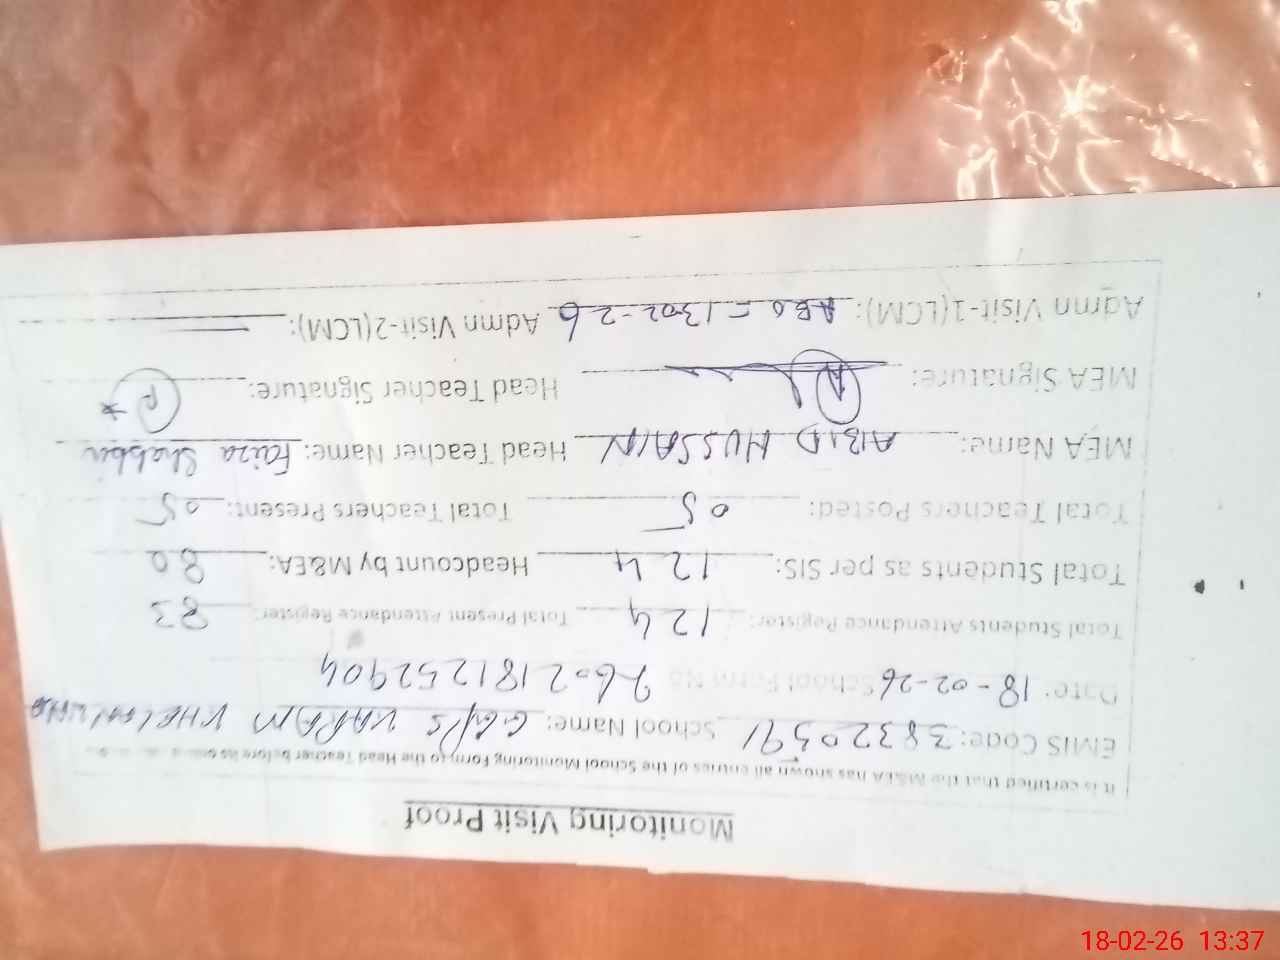 Monitoring Visit Proof
It is certified that the M&EA has shown all entries of the School Monitoring Form to the Head Teacher before its
EMIS Code: 38320591 School Name: GGPS
Date: 18-02-26 School Form No 2602181252904
Total Students Attendance Register: 124 Total Present Attendance Register: 83
Total Students as per SIS: 124 Headcount by M&EA: 80
Total Teachers Posted: 05 Total Teachers Present: 05
MEA Name: ABID HUSSAIN Head Teacher Name: Faiza Shabbir
MEA Signature: Head Teacher Signature:
Admn Visit-1(LCM): AEO = 1302-26 Admn Visit-2(LCM):
18-02-26 13:37